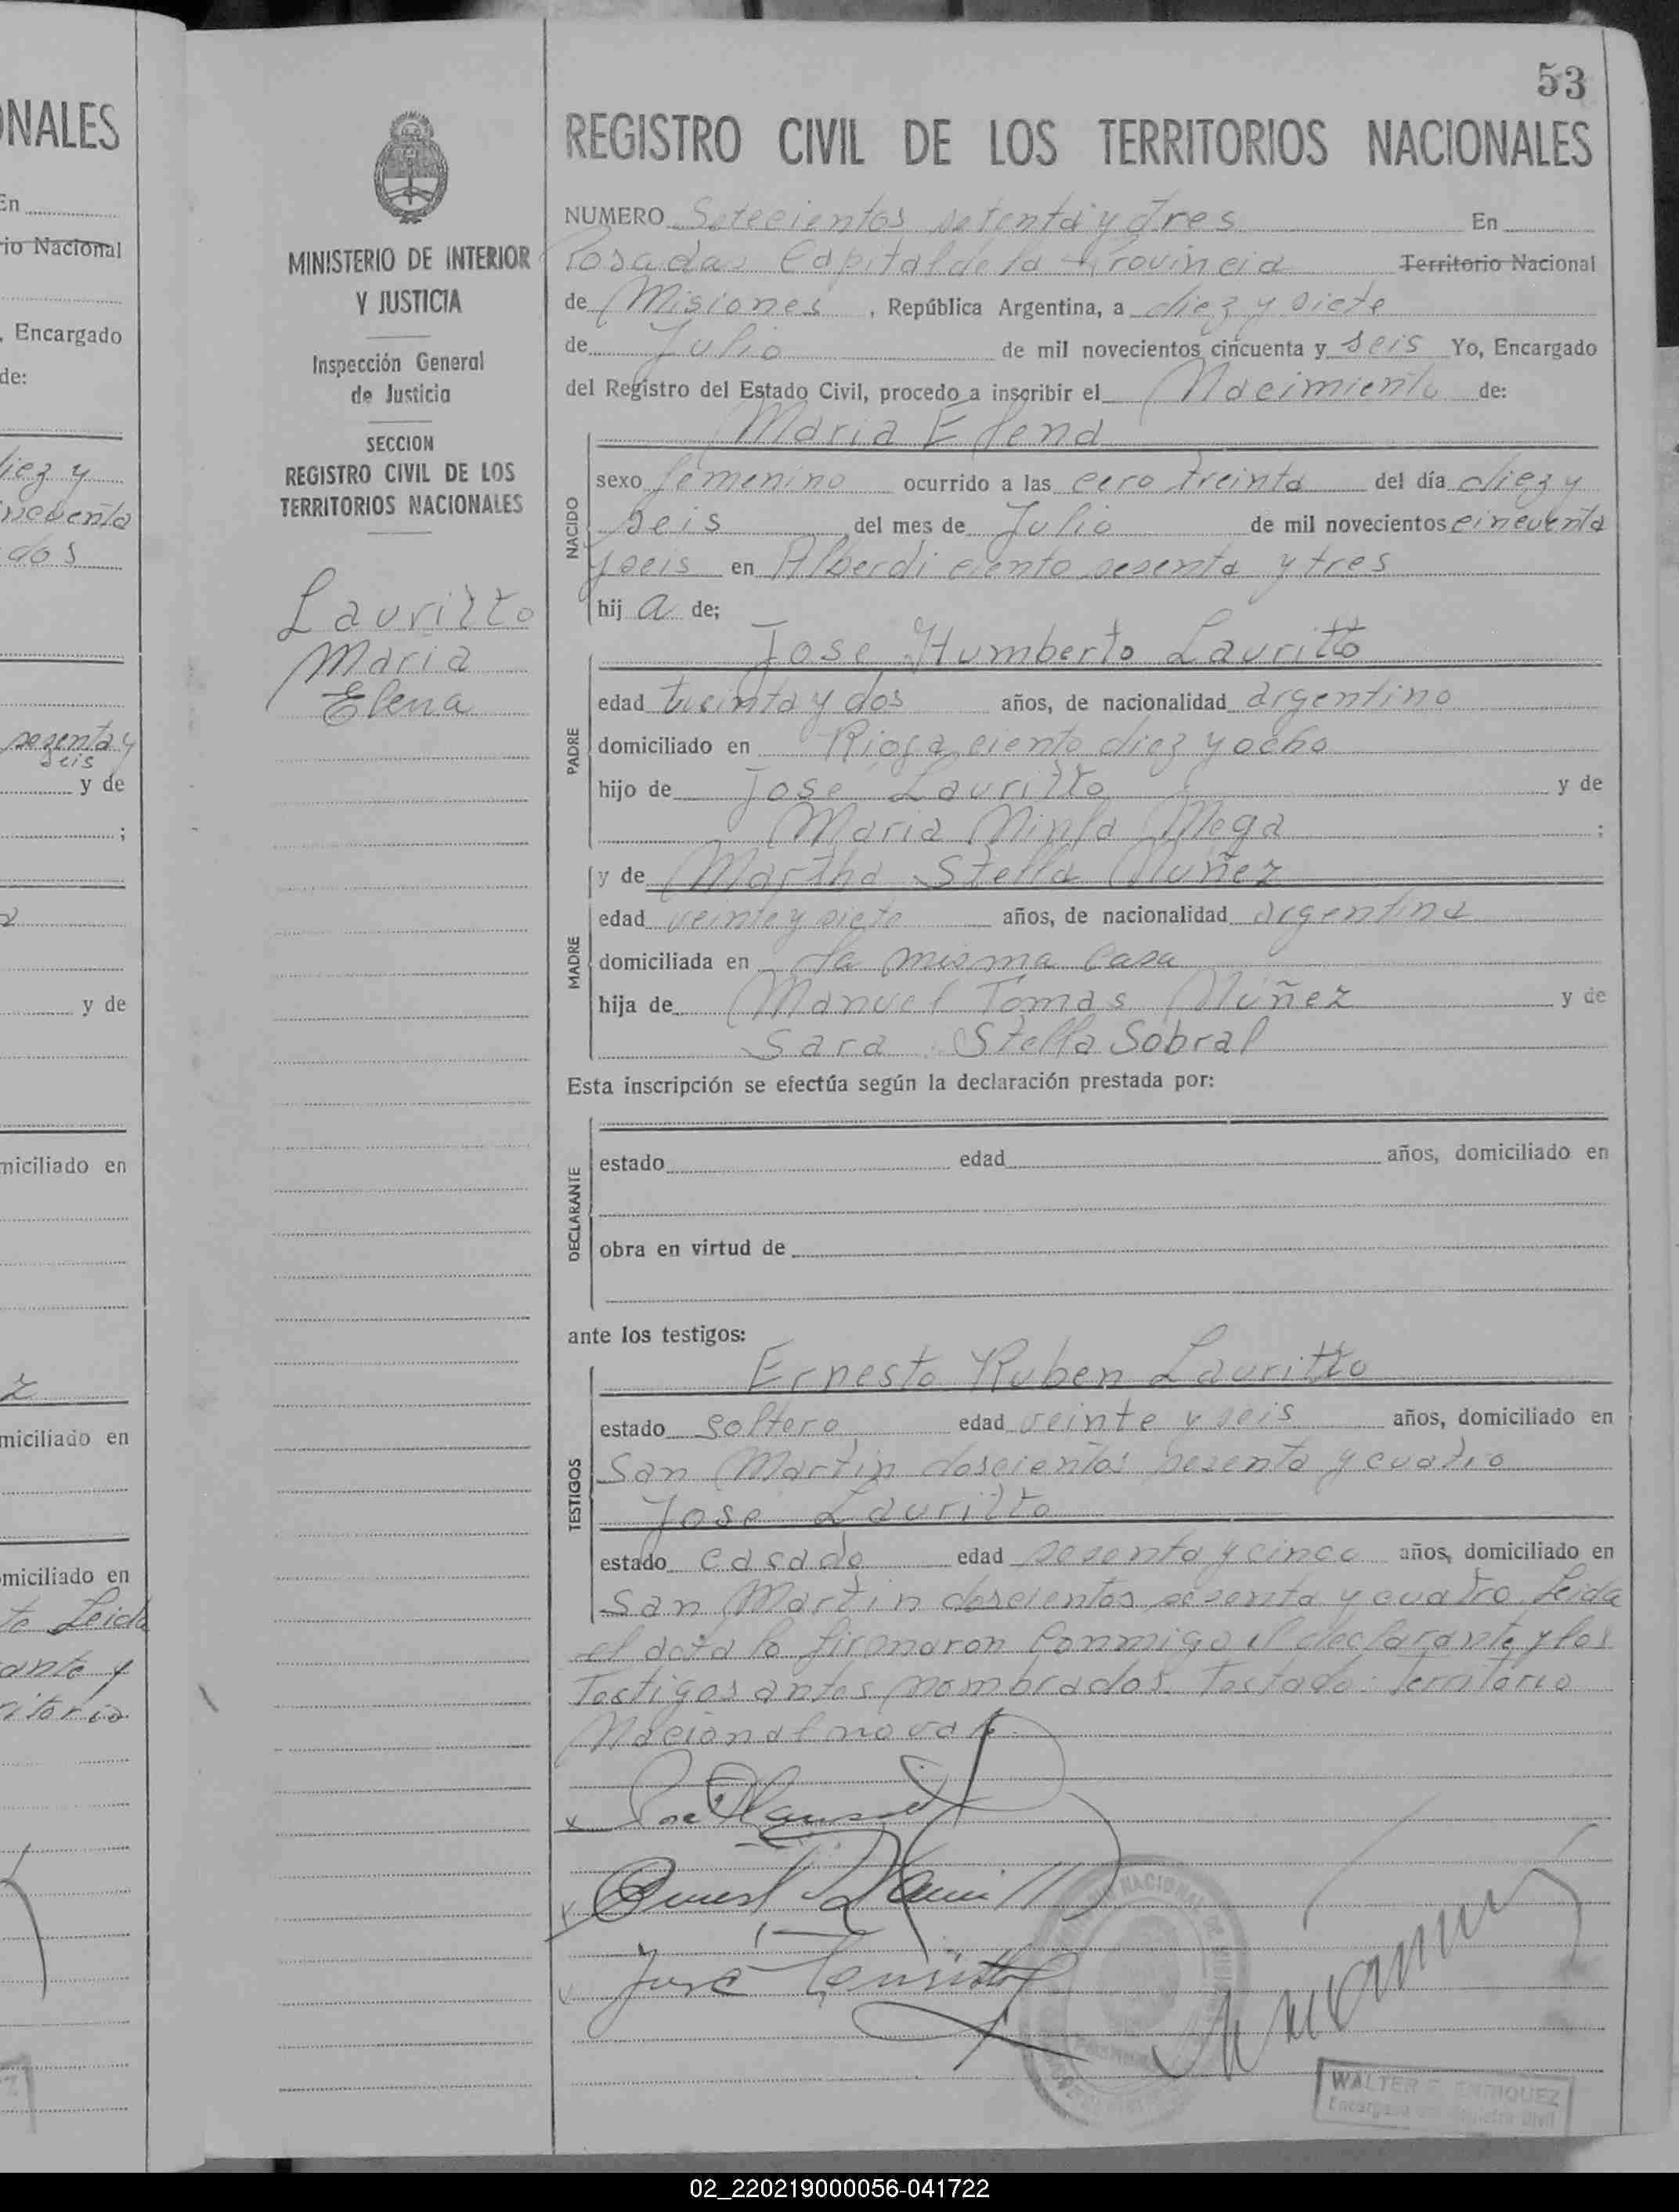 53
NALES
En
rio Nacional
, Encargado
de:
diez y
cincuenta
dos
sesenta y
seis
y de
;
y de
miciliado en
z
miciliado en
miciliado en
te Leida
ante y
ritorio
MINISTERIO DE INTERIOR
Y JUSTICIA
Inspección General
de Justicia
SECCION
REGISTRO CIVIL DE LOS
TERRITORIOS NACIONALES
Lauritto
Maria
Elena
REGISTRO CIVIL DE LOS TERRITORIOS NACIONALES
NUMERO Setecientos setenta y tres En
Posadas Capital de la Provincia Territorio Nacional
de Misiones, República Argentina, a diez y siete
de Julio de mil novecientos cincuenta y seis Yo, Encargado
del Registro del Estado Civil, procedo a inscribir el Nacimiento de:
Maria Elena
NACIDO
sexo femenino ocurrido a las cero treinta del día diez y
seis del mes de Julio de mil novecientos cincuenta
y seis en Alberdi ciento sesenta y tres
hij a de;
Jose Humberto Lauritto
PADRE
edad treinta y dos años, de nacionalidad argentino
domiciliado en Rioja ciento diez y ocho
hijo de Jose Lauritto y de
Maria Mega ;
y de Martha Stella Nuñez
MADRE
edad veinte y siete años, de nacionalidad argentina
domiciliada en la misma casa
hija de Manuel Tomas Núñez y de
Sara Stella Sobral
Esta inscripción se efectúa según la declaración prestada por:
DECLARANTE
estado edad años, domiciliado en
obra en virtud de
ante los testigos:
Ernesto Ruben Lauritto
TESTIGOS
estado soltero edad veinte y seis años, domiciliado en
San Martin doscientos sesenta y cuatro
Jose Lauritto
estado casado edad sesenta y cinco años, domiciliado en
San Martin doscientos sesenta y cuatro Leida
el acta la firmaron conmigo el declarante y los
Testigos antes nombrados. Testado: Territorio
Nacional no vale
José Lauritto
WALTER E. ENRIQUEZ
Encargado del Registro Civil
02_220219000056-041722